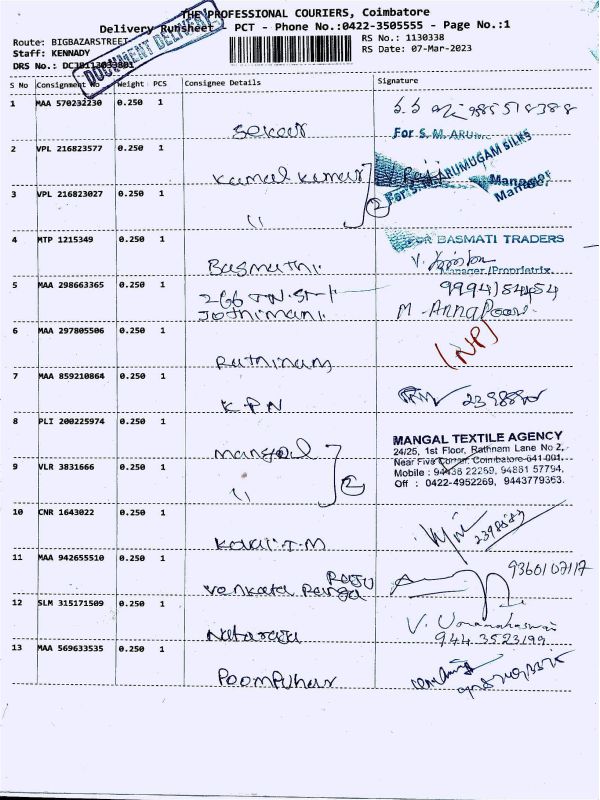 THE PROFESSIONAL COURIERS, Coimbatore
Delivery Runsheet - PCT - Phone No.:0422-3505555 - Page No.:1
Route: BIGBAZARSTREET
Staff: KENNADY
RS No.: 1130338
RS Date: 07-Mar-2023
DRS No.:
DOCUMENT DELIVERY
S No Consignment No Weight PCS Consignee Details Signature
1 MAA 570232230 0.250 1 Sekar
For S. M. ARUN
2 VPL 216823577 0.250 1 Kamal Kumar
For S. M. ARUMUGAM SILKS
Manager
Manager
3 VPL 216823027 0.250 1 " 2
4 MTP 1215349 0.250 1 Basmathi FOR BASMATI TRADERS
Manager/Proprietrix
5 MAA 298663365 0.250 1 266 Jothimani
M. Annapoorni
6 MAA 297805506 0.250 1 Rathinam (NP)
7 MAA 859210864 0.250 1 K.P.N
8 PLI 200225974 0.250 1 Mangal
MANGAL TEXTILE AGENCY
24/25, 1st Floor, Rathnam Lane No 2,
Near Five Corner, Coimbatore-641 001.
Mobile : 94438 22269, 94861 57794,
Off : 0422-4952269, 9443779363.
9 VLR 3831666 0.250 1 " 2
10 CNR 1643022 0.250 1
11 MAA 942655510 0.250 1 Venkata Ranga Raju 9360107117
12 SLM 315171509 0.250 1 Nataraja V. Umamaheswari
944 3523199
13 MAA 569633535 0.250 1 Poompuhar